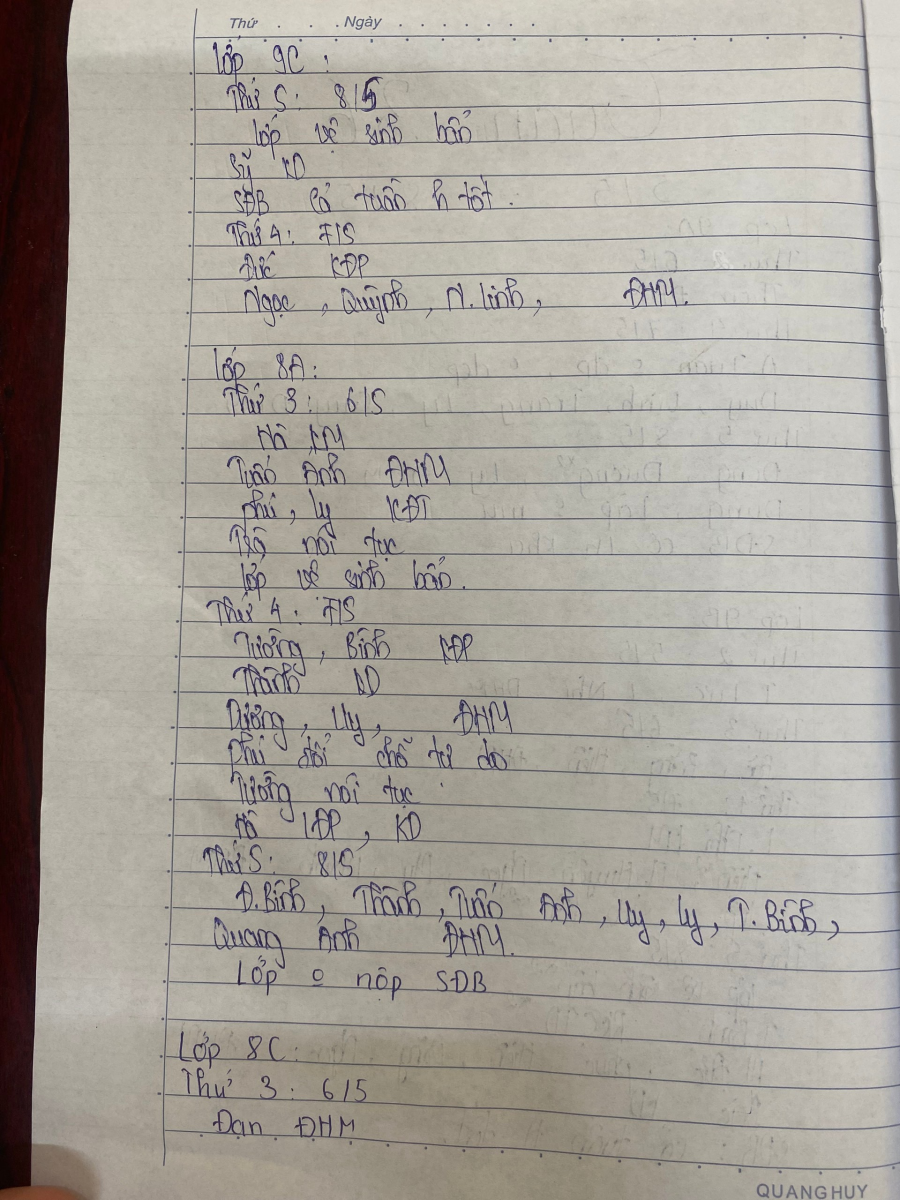 Thứ . . . Ngày . . . . . . .
Lớp 9C :
Thứ 5 : 8/5
Lớp vệ sinh bẩn
Sỹ KD
SĐB cả tuần h tốt .
Thứ 4 : 7/5
Đức KĐP
Ngọc , Quỳnh , N. linh , ĐHM .
Lớp 8A :
Thứ 3 : 6/5
Hà KM
Tuấn Anh ĐHM
Phú , ly KĐT
nói tục
Lớp vệ sinh bẩn .
Thứ 4 : 7/5
Tường , Bình KĐP
Thành KD
Dương , Uy , ĐHM
Phú đổi chỗ tự do
Tường nói tục
KĐP , KD
Thứ 5 : 8/5
Đ. Bình , Thành , Tuấn Anh , Uy , Ly , T. Bình ,
Quang Anh ĐHM .
Lớp 0 nộp SĐB
Lớp 8C :
Thứ 3 : 6/5
Đan ĐHM
QUANG HUY